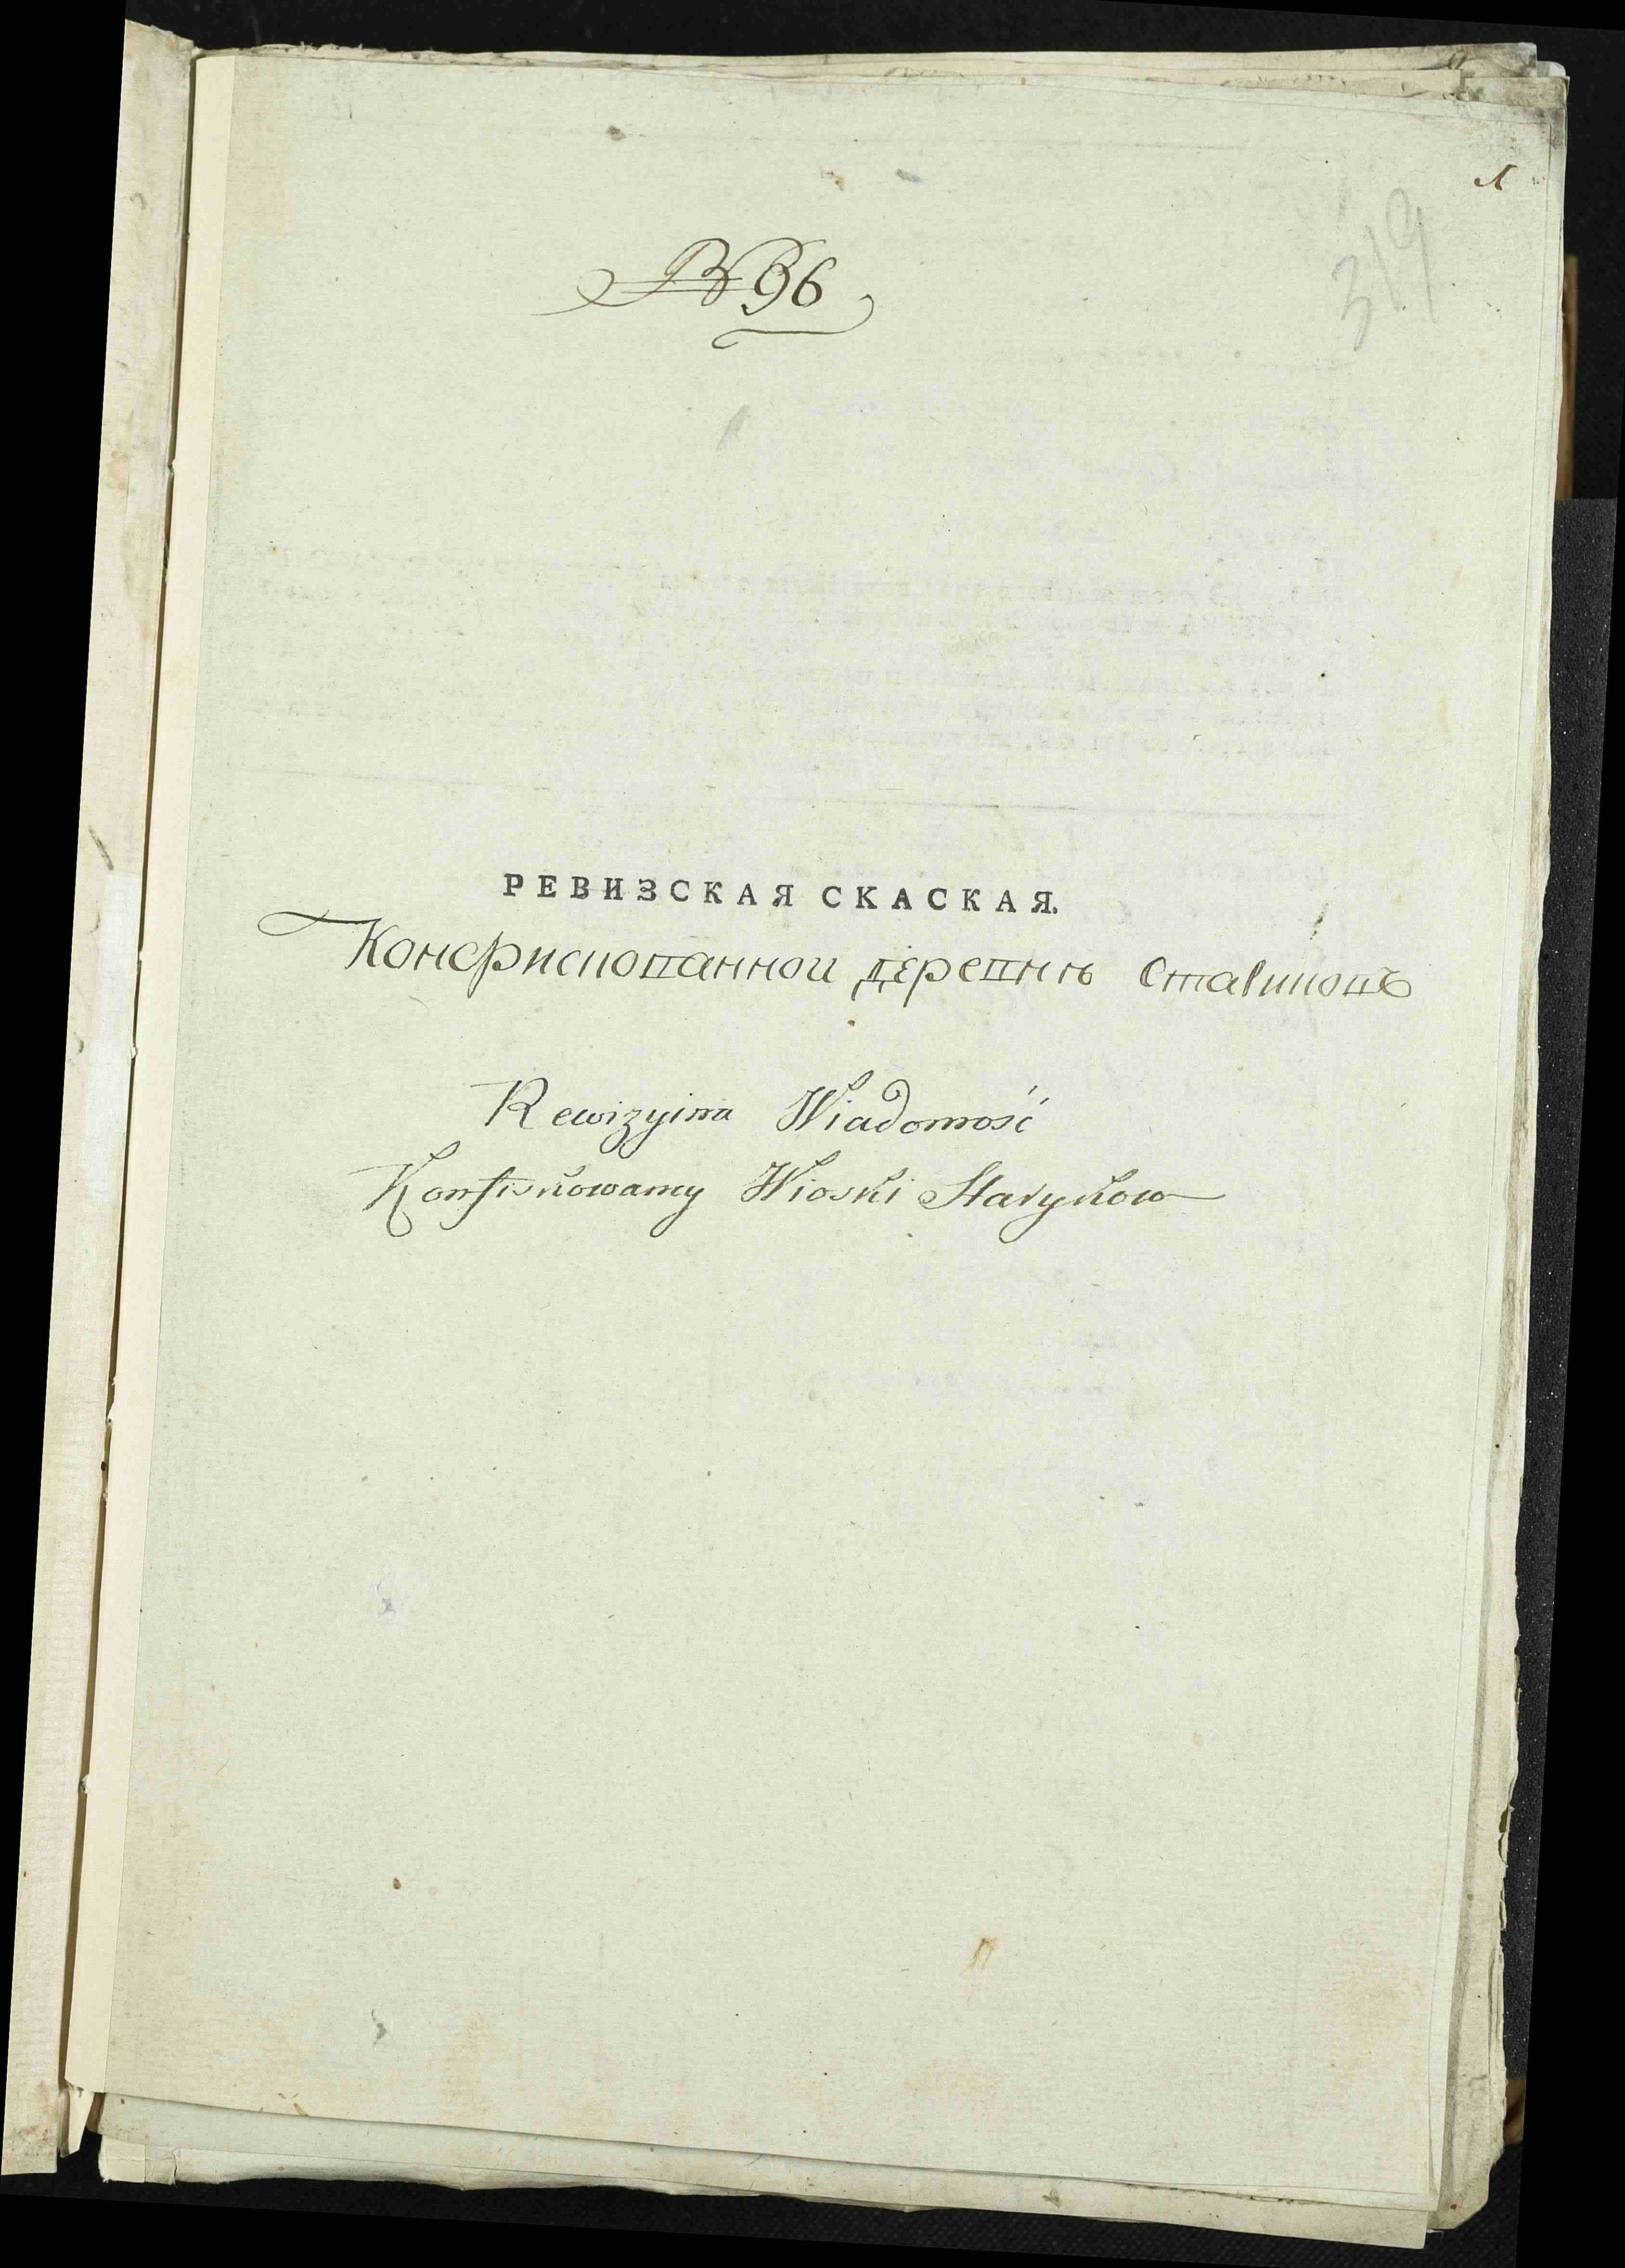 1
319
№ 96
РЕВИЗСКАЯ СКАСКАЯ.
Конфискованной деревнѣ Стариковъ
Rewizyina Wiadomość
Konfiskowamy Wioski Starykow